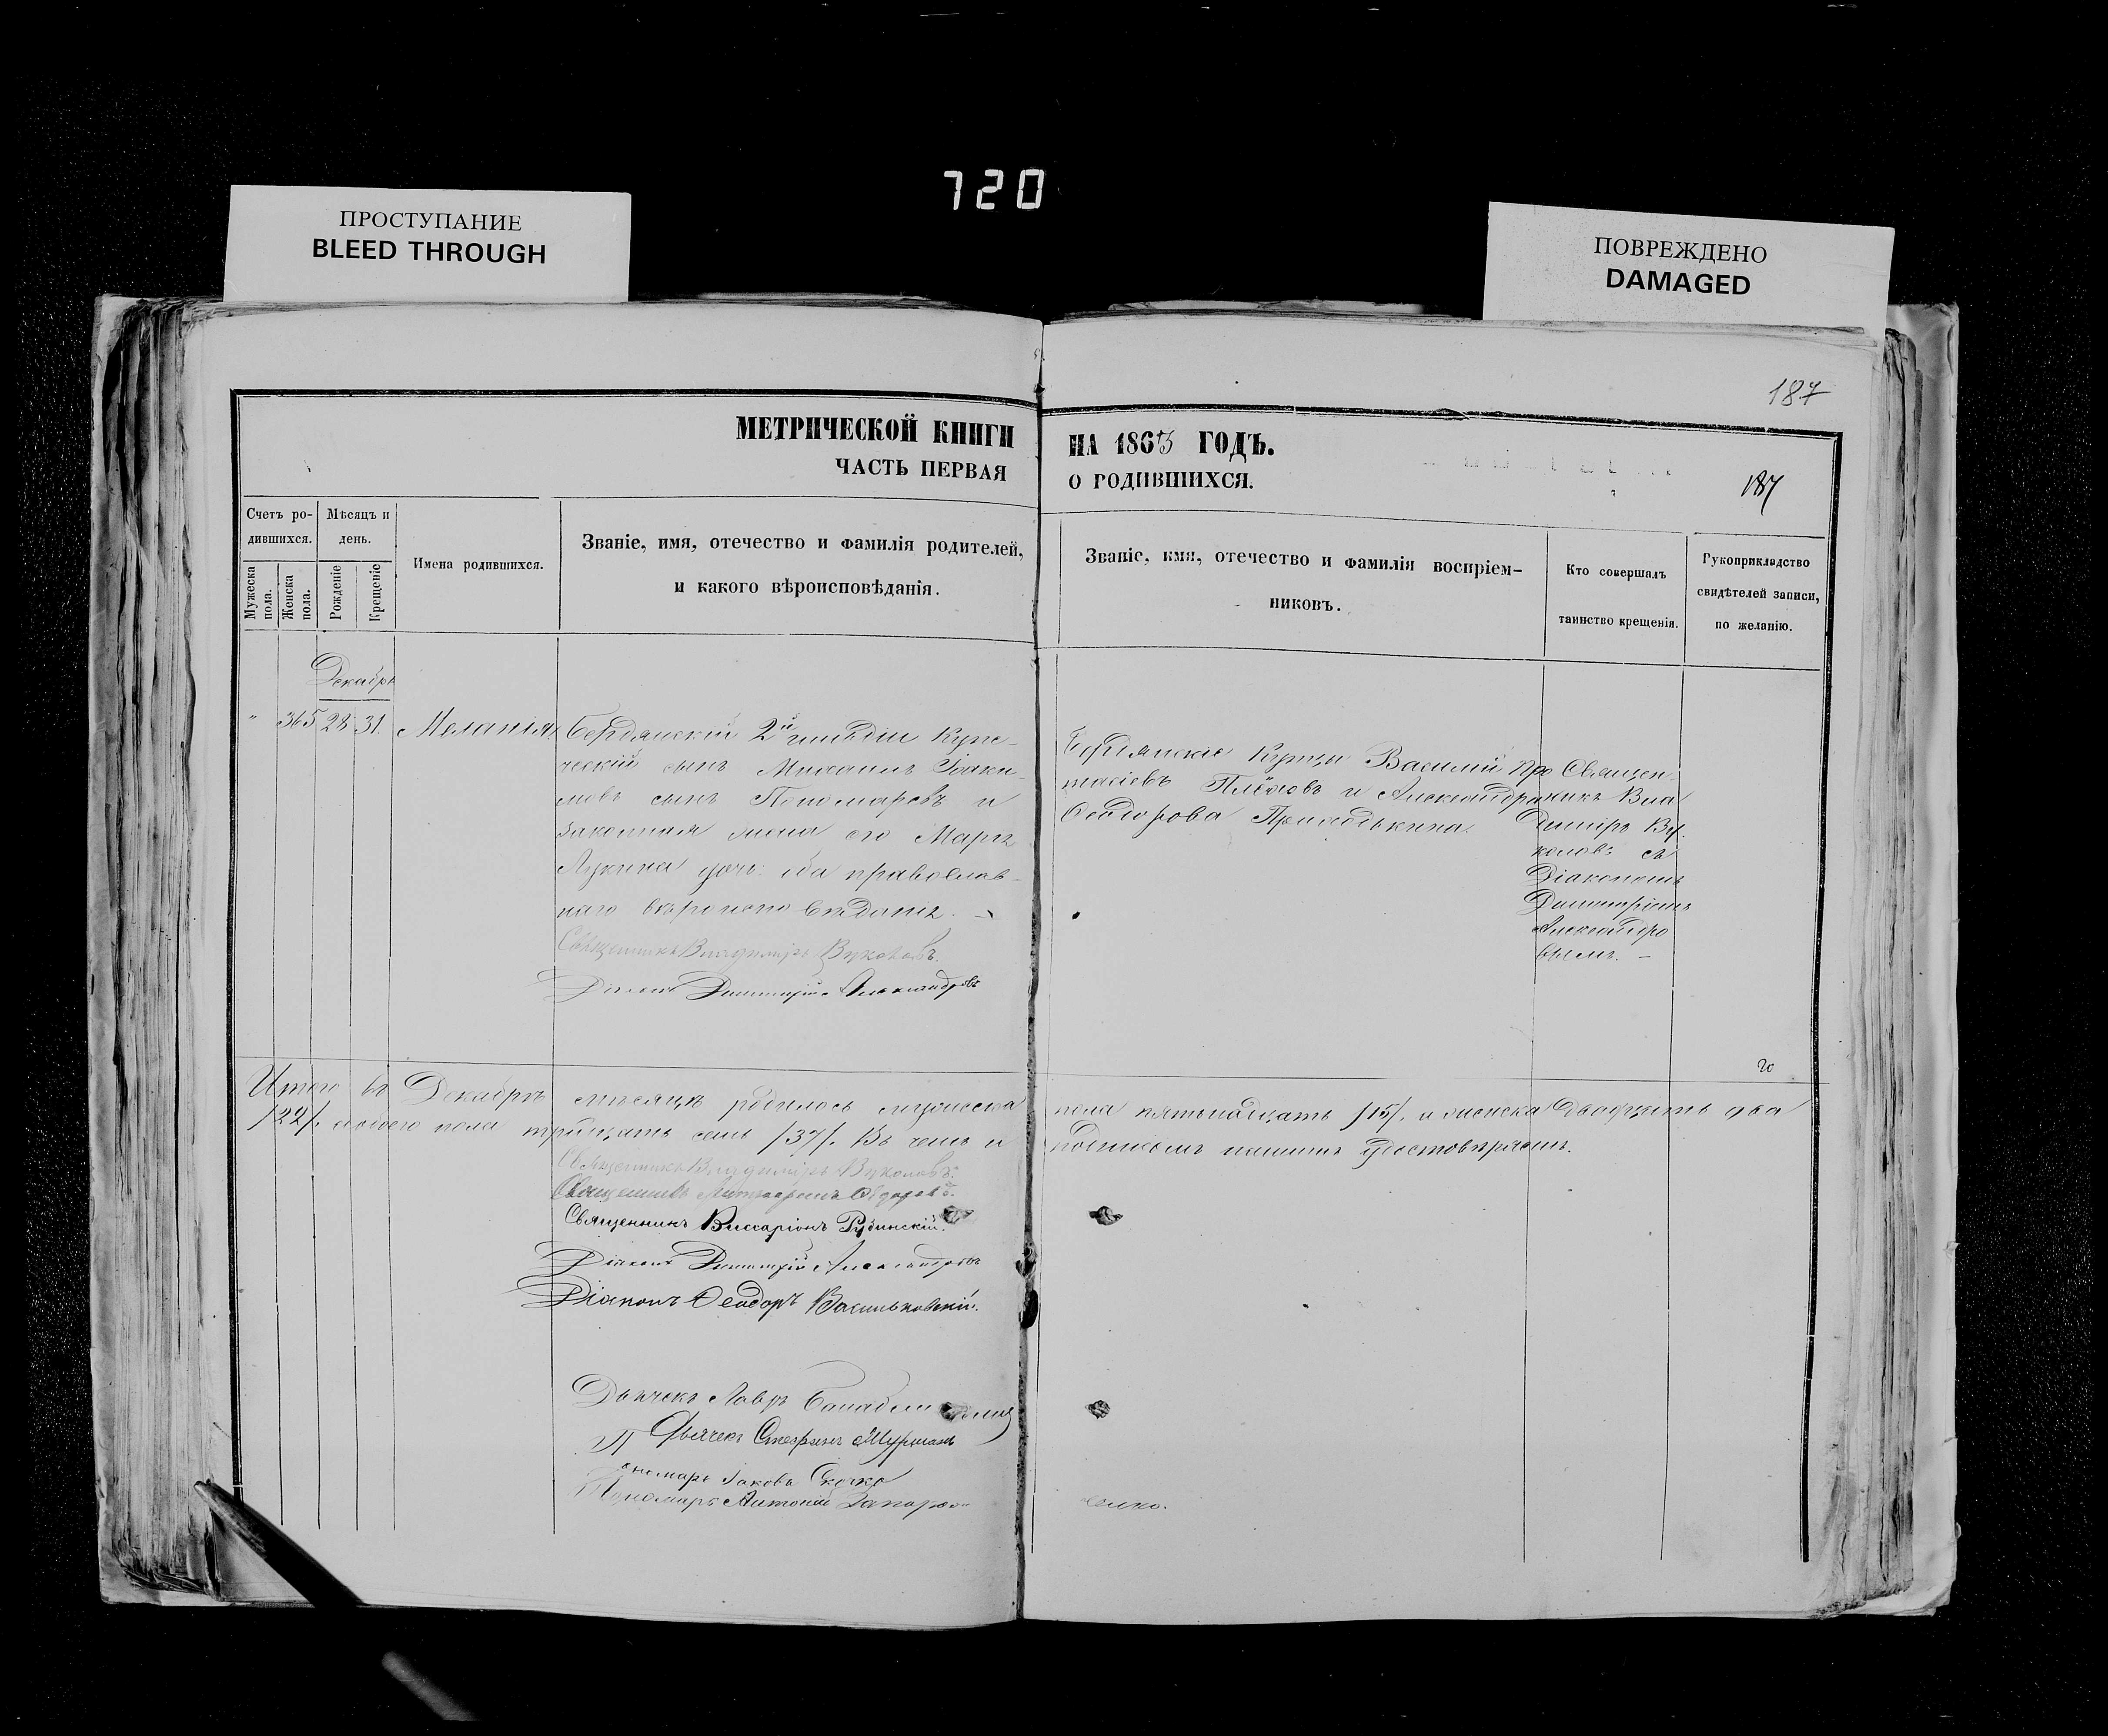 720
ПРОСТУПАНИЕ
BLEED THROUGH
ПОВРЕЖДЕНО
DAMAGED
187
МЕТРИЧЕСКОЙ КНИГИ НА 1863 ГОДЪ.
ЧАСТЬ ПЕРВАЯ О РОДИВШИХСЯ.
187
Счетъ ро-
дившихся.
Мужеска пола.
Женска пола.
Мѣсяцъ и
день.
Рожденіе
Крещеніе
Имена родившихся.
Званіе, имя, отечество и фамилія родителей,
и какого вѣроисповѣданія.
Званіе, имя, отечество и фамилія воспріем-
никовъ.
Кто совершалъ
таинство крещенія.
Рукоприкладство
свидѣтелей записи,
по желанію.
Декабрь
" 365 28 31. Меланія.
Бердянскій 2й гильдіи Купе-
ческій сынъ Михаилъ Іоаки-
мовъ сынъ Пономаревъ и
законная жена его Марѳа
Лукина дочь: оба православ-
наго вѣроисповѣданія. –
Священникъ Владиміръ Вуколовъ.
Діаконъ Димитрій Александровъ
Бердянскіе Купцы Василій
и Александра
Ѳеодорова
Священ-
никъ Вла
диміръ Ву-
коловъ съ
Діакономъ
Димитріемъ
Александро
вымъ. –
Итого въ Декабрѣ мѣсяцѣ родилось мужеска пола пятьнадцать /15/. и женска двадцать два
/22/. обоего пола тридцать семь /37/. Въ чемъ и подписомъ нашимъ удостовѣряемъ.
Священникъ Владиміръ Вуколовъ.
Священникъ
Священникъ Виссаріонъ Рудинскій.
Діаконъ Димитрій Александровъ
Діаконъ Ѳеодоръ Васильковскій.
Дьячекъ Лавръ
Дьячекъ Стефанъ
Пономарь Іаковъ Скочко
Пономарь Антоній